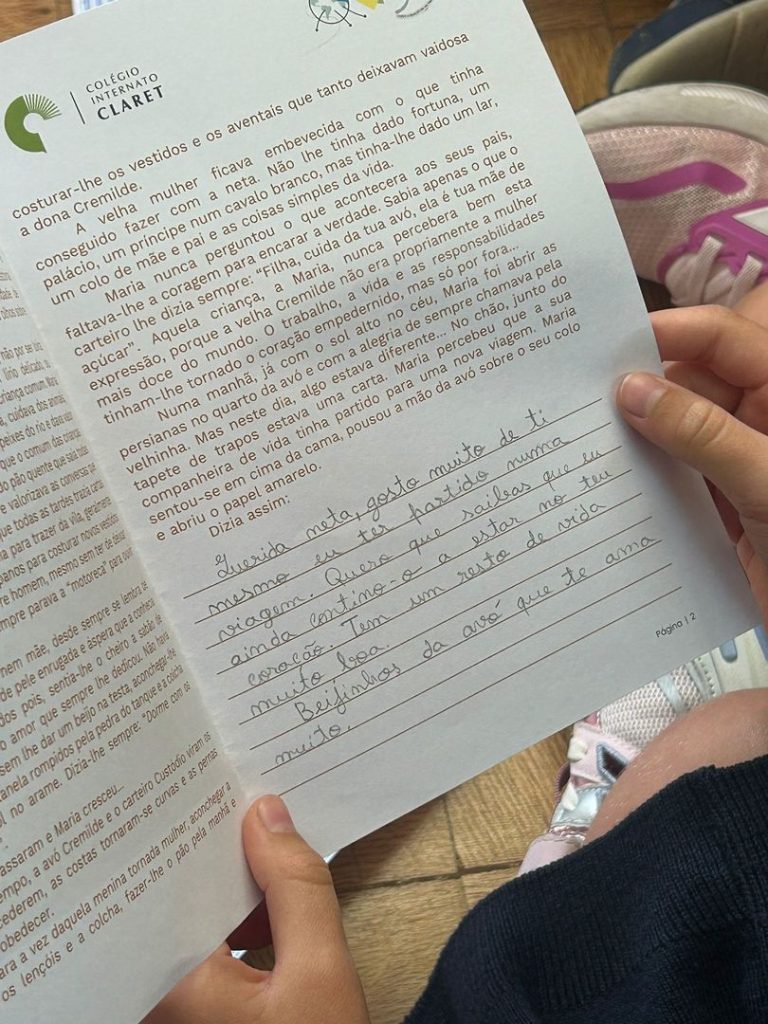 não por ser do
lírio delicado, e
criança comum. Mar
, cuidava dos animais
peixes do rio e dava
que o comum das criança
do pão quente que saía
e valorizava as conversas
que todas as tardes trazia carta
a para trazer da vila, geralmente
panos para costurar novos vestidos
re homem, mesmo sem ter de deixar
mpre parava a "motoreca" para ouvir
nem mãe, desde sempre se lembra de
de pele enrugada e áspera que a conhecia
dos pois, sentia-lhe o cheiro a sabão de
o amor que sempre lhe dedicou. Não havia
sem lhe dar um beijo na testa, aconchegar-lhe
anela rompidos pela pedra do tanque e a colcha
ol no arame. Dizia-lhe sempre: "Dorme com os
assaram e Maria cresceu...
empo, a avó Cremilde e o carteiro Custódio viram os
cederem, as costas tornaram-se curvas e as pernas
obedecer.
ara a vez daquela menina tornada mulher, aconchegar a
os lençóis e a colcha, fazer-lhe o pão pela manhã e
COLÉGIO
INTERNATO
CLARET
costurar-lhe os vestidos e os aventais que tanto deixavam vaidosa
a dona Cremilde.
A velha mulher ficava embevecida com o que tinha
conseguido fazer com a neta. Não lhe tinha dado fortuna, um
palácio, um príncipe num cavalo branco, mas tinha-lhe dado um lar,
um colo de mãe e pai e as coisas simples da vida.
Maria nunca perguntou o que acontecera aos seus pais,
faltava-lhe a coragem para encarar a verdade. Sabia apenas o que o
carteiro lhe dizia sempre: "Filha, cuida da tua avó, ela é tua mãe de
açúcar". Aquela criança, a Maria, nunca percebera bem esta
expressão, porque a velha Cremilde não era propriamente a mulher
mais doce do mundo. O trabalho, a vida e as responsabilidades
tinham-lhe tornado o coração empedernido, mas só por fora...
Numa manhã, já com o sol alto no céu, Maria foi abrir as
persianas no quarto da avó e com a alegria de sempre chamava pela
velhinha. Mas neste dia, algo estava diferente... No chão, junto do
tapete de trapos estava uma carta. Maria percebeu que a sua
companheira de vida tinha partido para uma nova viagem. Maria
sentou-se em cima da cama, pousou a mão da avó sobre o seu colo
e abriu o papel amarelo.
Dizia assim:
Querida neta, gosto muito de ti
mesmo eu ter partido numa
viagem. Quero que saibas que eu
ainda continu-o a estar no teu
coração. Tem um resto de vida
muito boa.
Beijinhos da avó que te ama
muito.
Página | 2